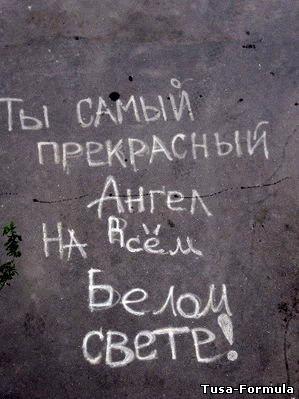 Ты самый
прекрасный
Ангел
на всём
Белом
свете!
Tusa-Formula